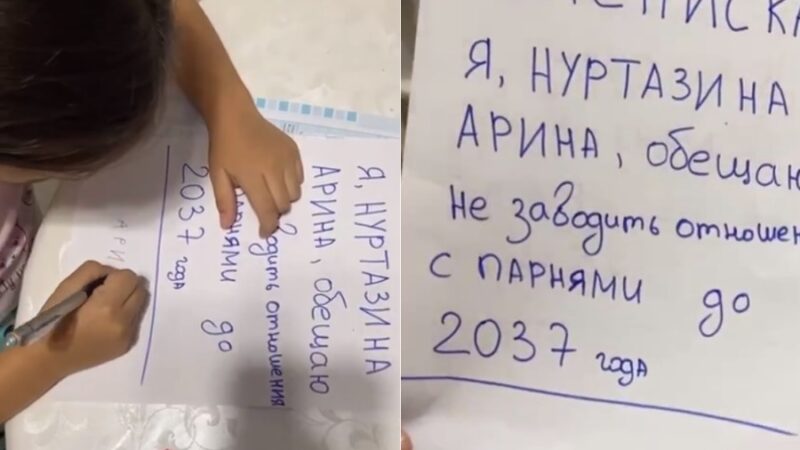 Я, НУРТАЗИНА
АРИНА, обещаю
отношения
до
2037 года
АРИ
Я, НУРТАЗИНА
АРИНА, обещаю
не заводить
с ПАРНЯМИ до
2037 года